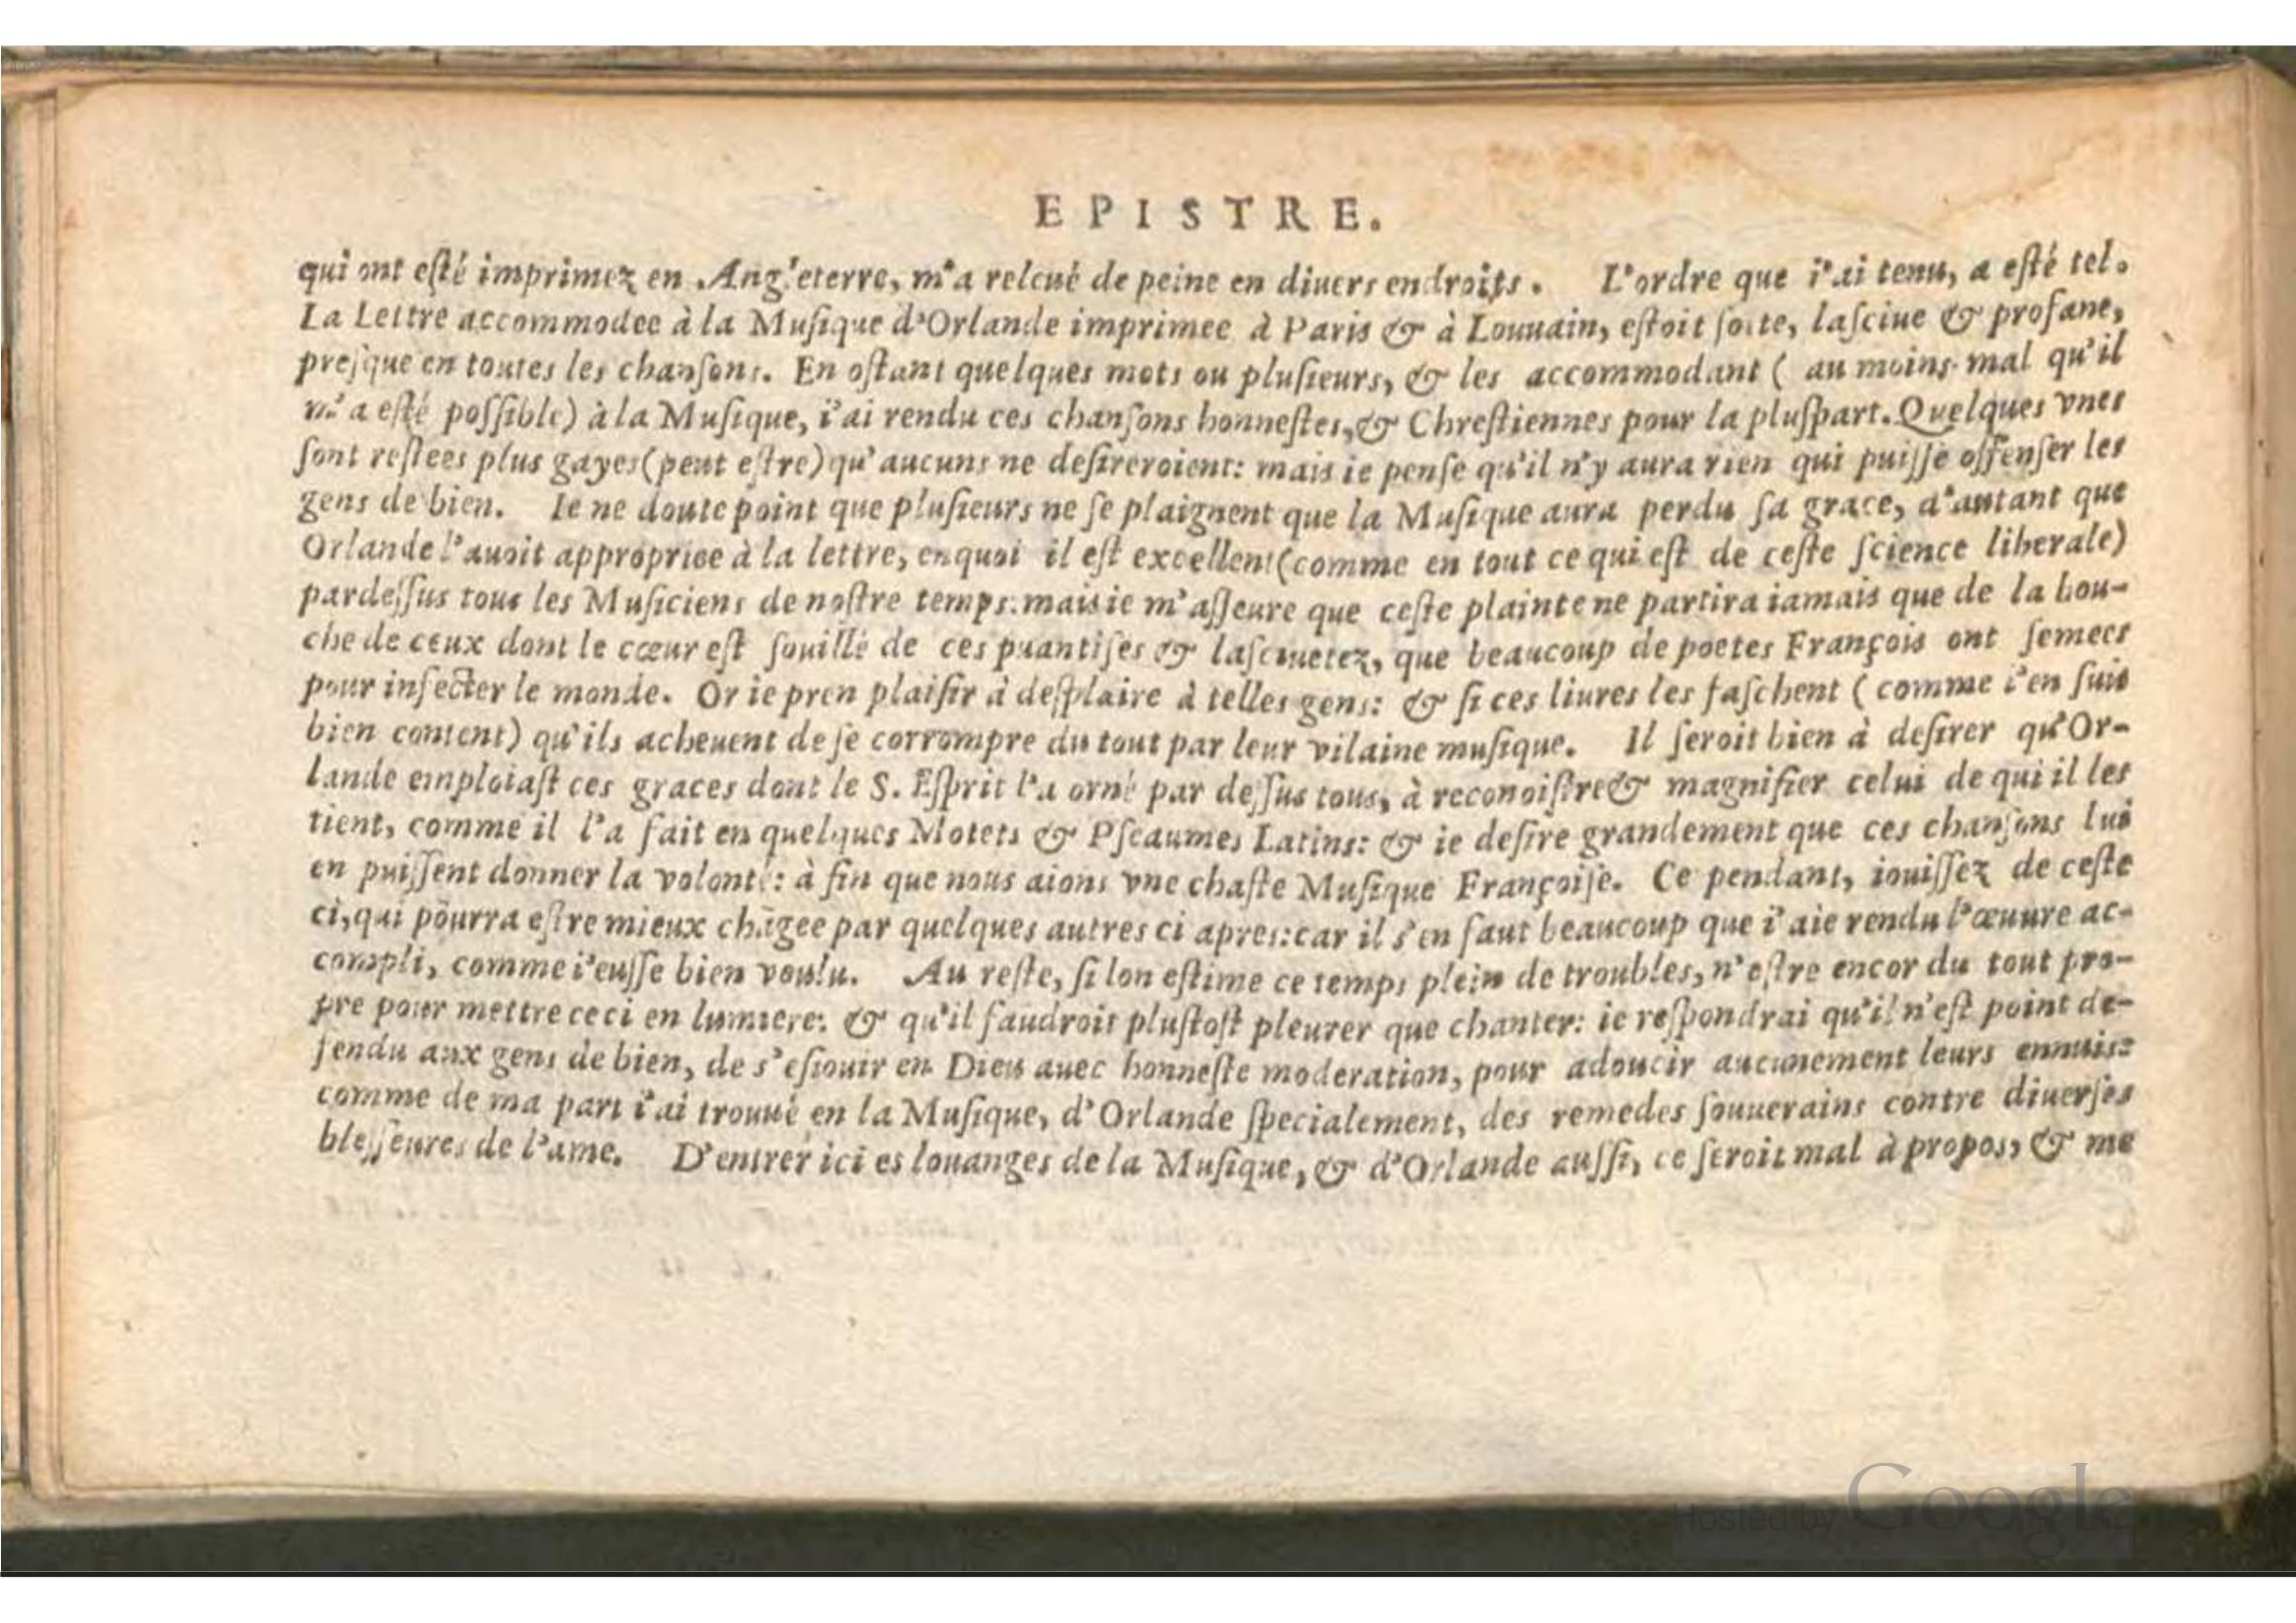 EPISTRE.
qui ont eſté imprimez en Angleterre, m'a releué de peine en diuers endroits. L'ordre que i'ai tenu, a eſté tel.
La Lettre accommodee à la Muſique d'Orlande imprimee à Paris & à Louuain, eſtoit ſotte, laſciue & profane,
preſque en toutes les chanſons. En oſtant quelques mots ou pluſieurs, & les accommodant ( au moins mal qu'il
m'a eſté poſſible) à la Muſique, i'ai rendu ces chanſons honneſtes, & Chreſtiennes pour la pluſpart. Quelques vnes
ſont reſtees plus gayes (peut eſtre) qu'aucuns ne deſireroient: mais ie penſe qu'il n'y aura rien qui puiſſe offenſer les
gens de bien. Ie ne doute point que pluſieurs ne ſe plaignent que la Muſique aura perdu ſa grace, d'autant que
Orlande l'auoit appropriee à la lettre, enquoi il eſt excellent (comme en tout ce qui eſt de ceſte ſcience liberale)
pardeſſus tous les Muſiciens de noſtre temps: mais ie m'aſſeure que ceſte plainte ne partira iamais que de la bou-
che de ceux dont le cœur eſt ſouillé de ces puantiſes & laſciuetez, que beaucoup de poetes François ont ſemees
pour infecter le monde. Or ie pren plaiſir à deſplaire à telles gens: & ſi ces liures les faſchent ( comme i'en ſuis
bien content) qu'ils acheuent de ſe corrompre du tout par leur vilaine muſique. Il ſeroit bien à deſirer qu'Or-
lande emploiaſt ces graces dont le S. Eſprit l'a orné par deſſus tous, à reconoiſtre & magnifier celui de qui il les
tient, comme il l'a fait en quelques Motets & Pſeaumes Latins: & ie deſire grandement que ces chanſons lui
en puiſſent donner la volonté: à fin que nous aions vne chaſte Muſique Françoiſe. Ce pendant, iouiſſez de ceſte
ci, qui pourra eſtre mieux chãgee par quelques autres ci apres: car il s'en faut beaucoup que i'aie rendu l'œuure ac-
compli, comme i'euſſe bien voulu. Au reſte, ſi lon eſtime ce temps plein de troubles, n'eſtre encor du tout pro-
pre pour mettre ceci en lumiere: & qu'il faudroit pluſtoſt pleurer que chanter: ie reſpondrai qu'il n'eſt point de-
fendu aux gens de bien, de s'eſiouir en Dieu auec honneſte moderation, pour adoucir aucunement leurs ennuis:
comme de ma part i'ai trouué en la Muſique, d'Orlande ſpecialement, des remedes ſouuerains contre diuerſes
bleſſeures de l'ame. D'entrer ici es louanges de la Muſique, & d'Orlande auſſi, ce ſeroit mal à propos, & me
Hosted by Google